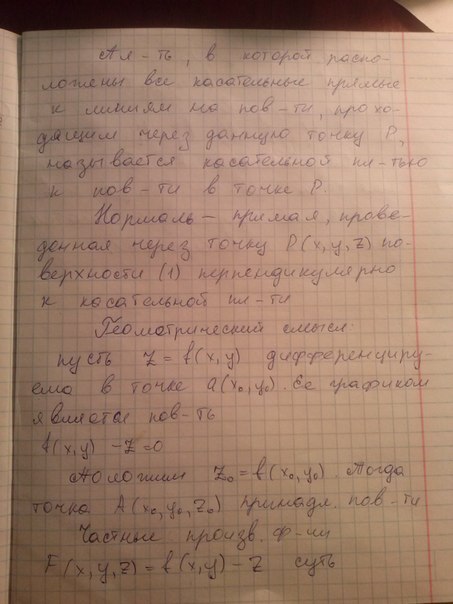 Пл-ть, в которой распо-
ложены все касательные прямые
к линиям на пов-ти, прохо-
дящим через данную точку P,
называется касательной пл-тью
к пов-ти в точке P.
Нормаль – прямая, прове-
денная через точку P(x,y,z) по-
верхности (1) перпендикулярно
к касательной пл-ти
Геометрический смысл:
пусть z = f(x,y) дифференциру-
ема в точке a(x₀,y₀). Ее графиком
является пов-ть
f(x,y) - z = 0
Положим z₀ = f(x₀,y₀). Тогда
точка A(x₀,y₀,z₀) принадл. пов-ти
Частные произв. ф-ии
F(x,y,z) = f(x,y) - z суть